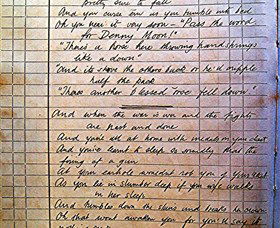 Pretty sure to fall
And you curse 'em as you tumble into bed
Oh you hear it very soon - "Pass the word
for Denny Moon!"
"There's a horse here throwing handsprings
like a clown"
"And it's shoo the others back or he'd cripple
half the pack"
"There's another blessed 'orse fell down".
And when the war is over and the fights
are past and done
And you're at home
And you've learnt to sleep so soundly that the
firing of a gun
At your earhole wouldn't rob you of your rest
As you lie in slumber deep if your wife walks
in her sleep
And tumbles down the stairs and breaks her crown
Oh that won't awaken you, for you'll say it